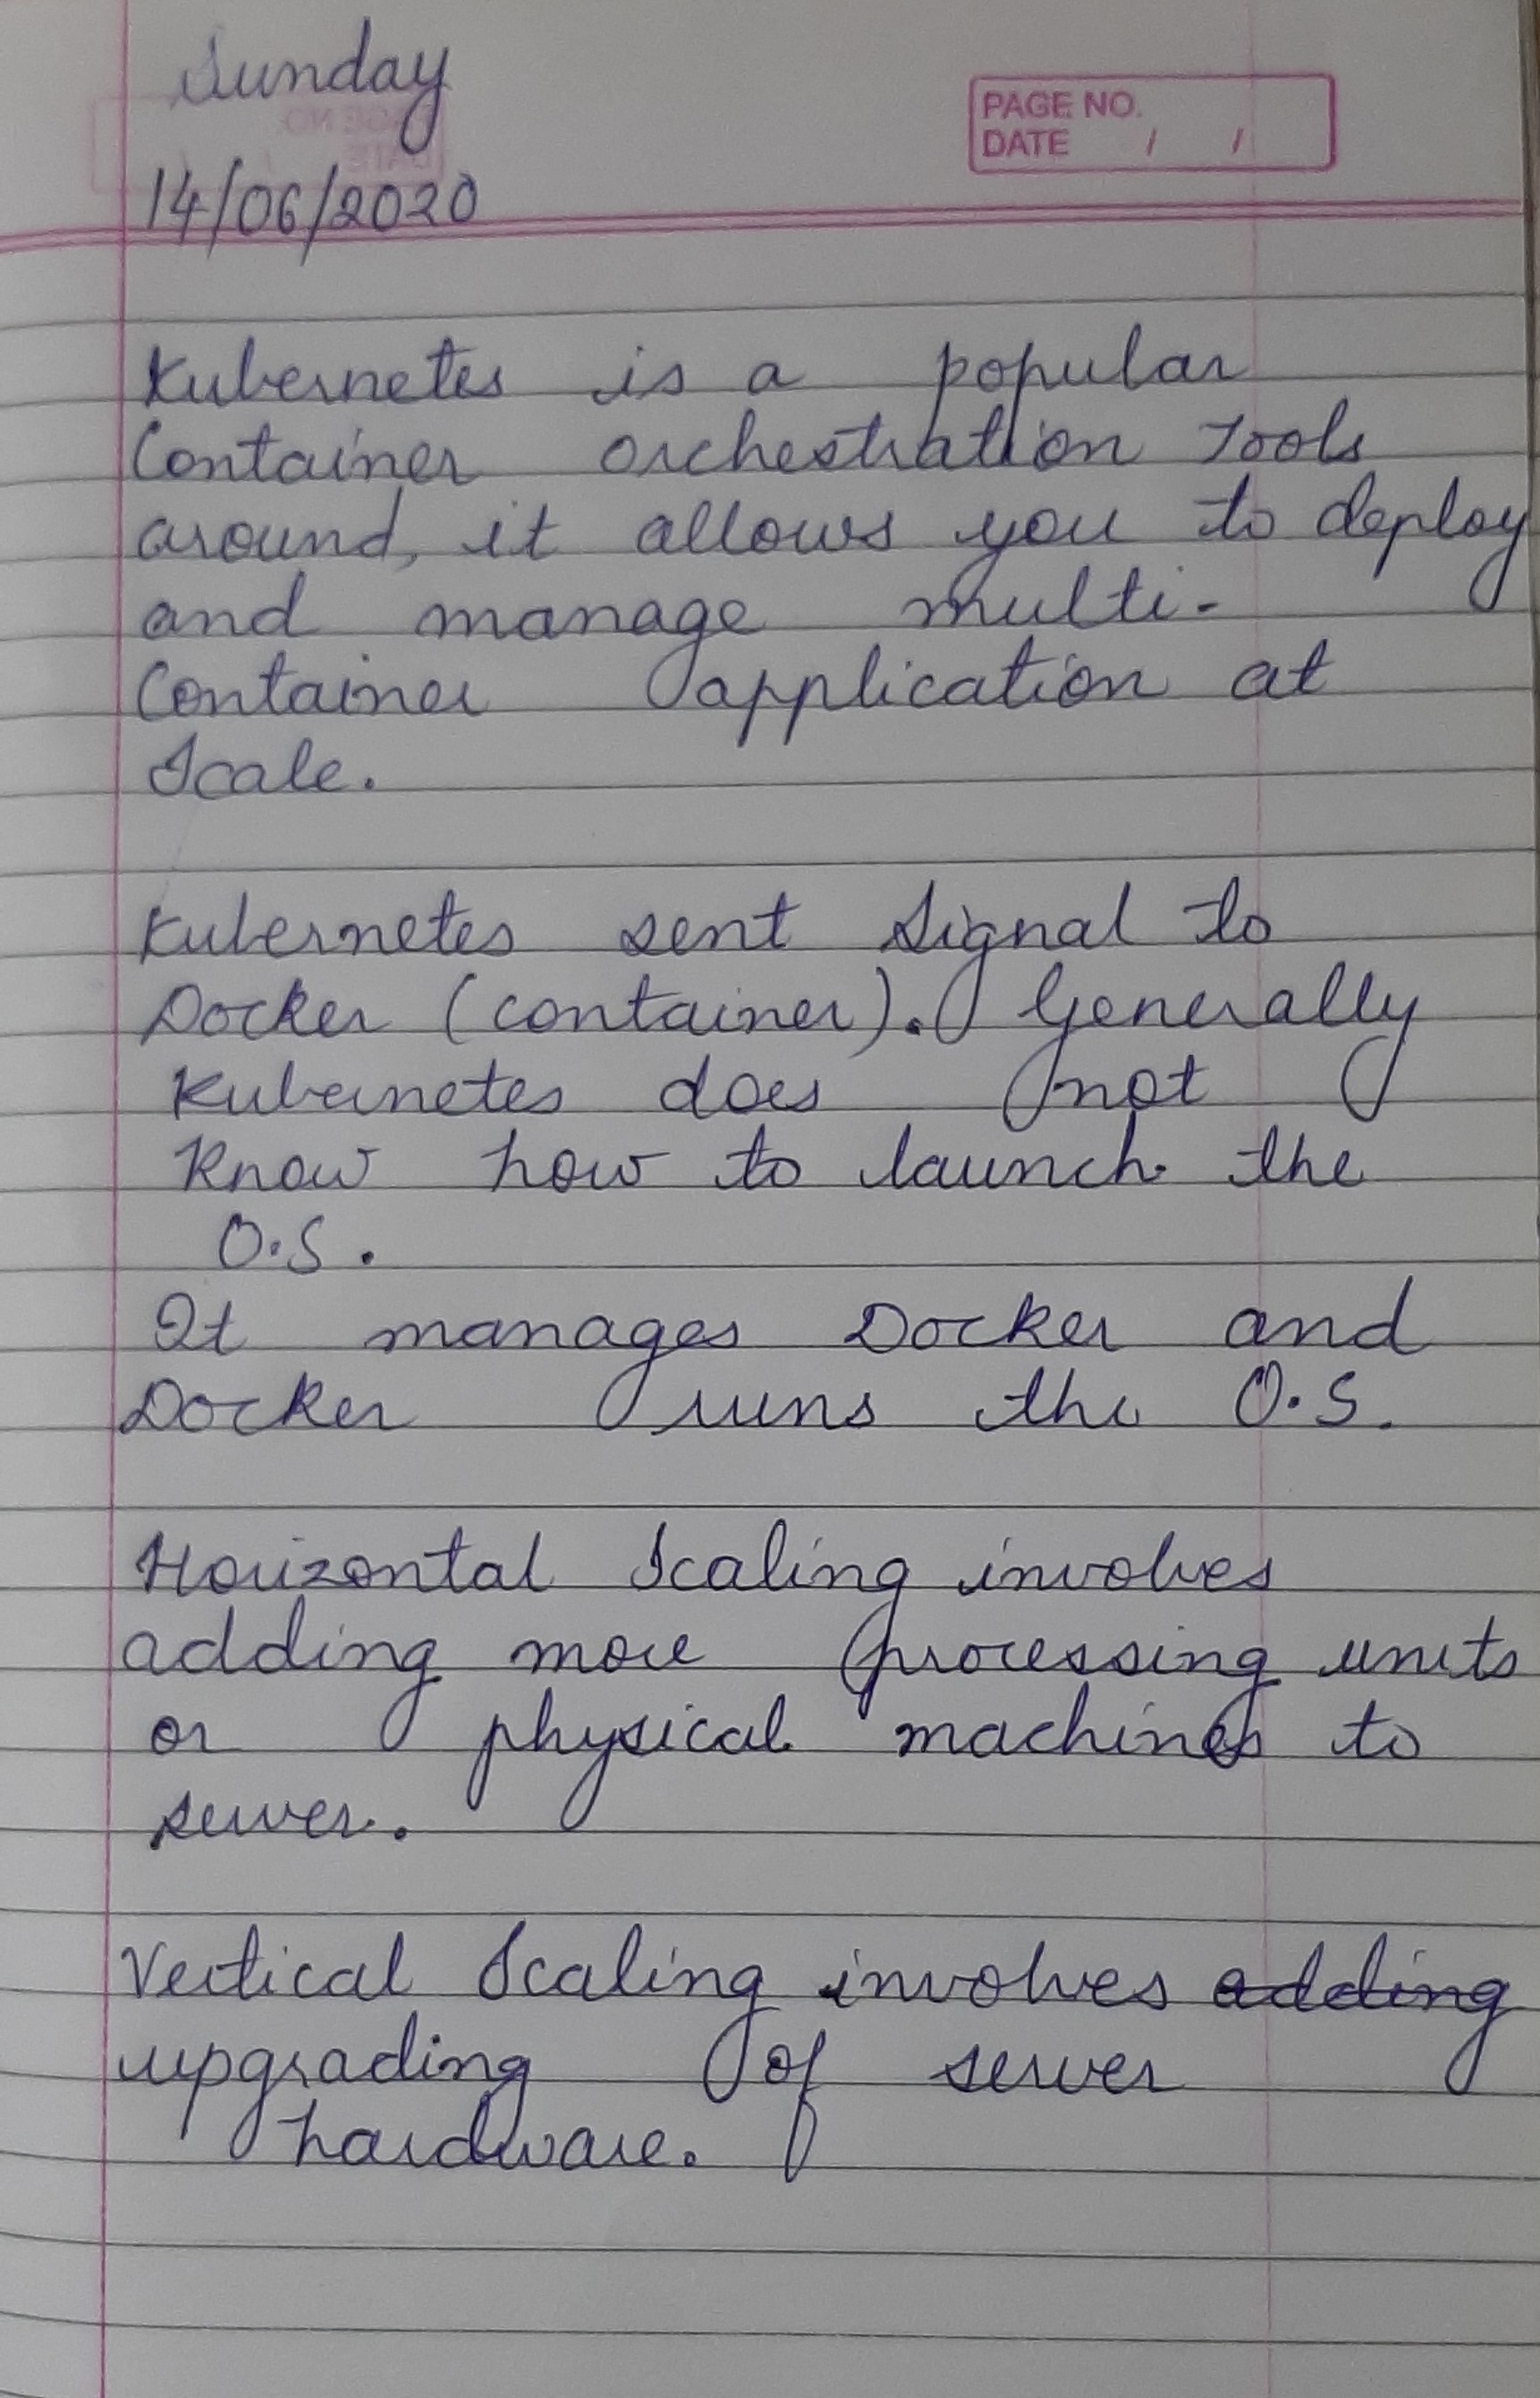 Sunday
PAGE NO.
DATE / /
14/06/2020
Kubernetes is a popular
Container orchestration Tools
around, it allows you to deploy
and manage multi-
Container application at
Scale.
Kubernetes sent signal to
Docker (container). Generally
Kubernetes does not
Know how to launch the
O.S.
It manages Docker and
Docker runs the O.S.
Horizontal Scaling involves
adding more processing units
or physical machines to
server.
Vertical Scaling involves adding
upgrading of server
hardware.